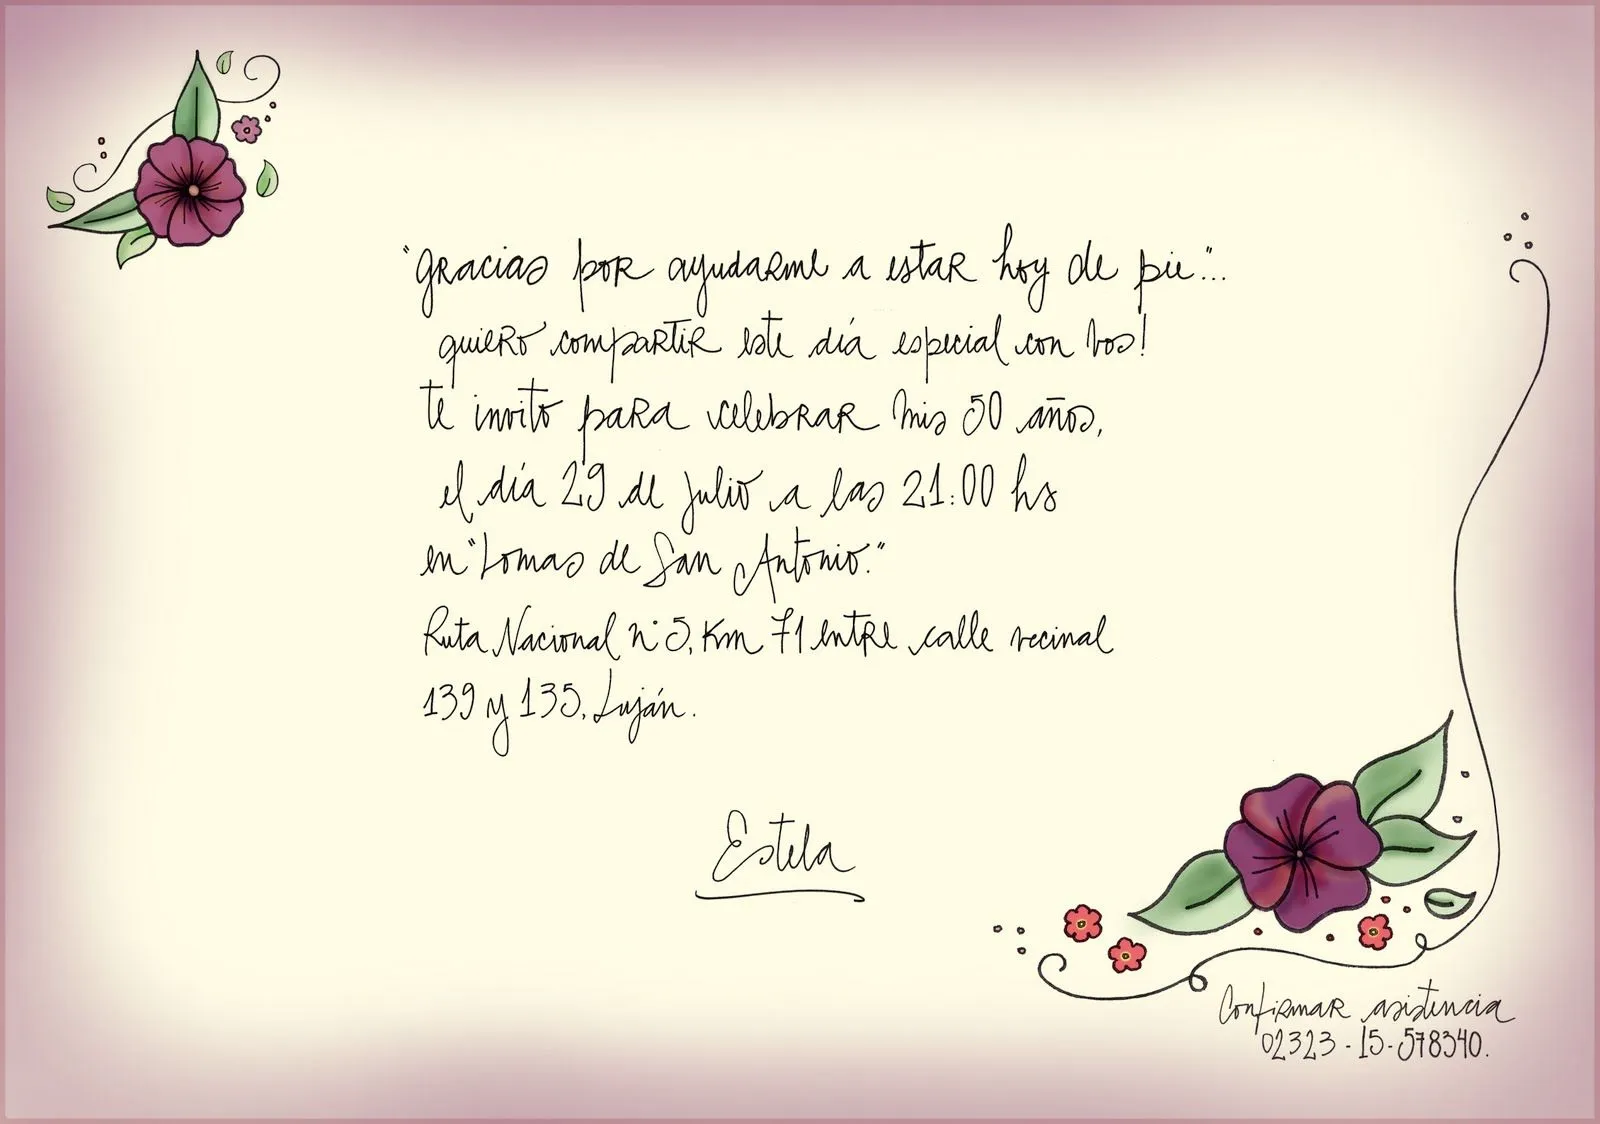 "Gracias por ayudarme a estar hoy de pie"...
quiero compartir este día especial con vos!
te invito para celebrar mis 50 años,
el día 29 de Julio a las 21:00 hs
en "Lomas de San Antonio."
Ruta Nacional n° 5, Km 71 entre calle vecinal
139 y 135, Luján.
Estela
Confirmar asistencia
02323-15-578340.